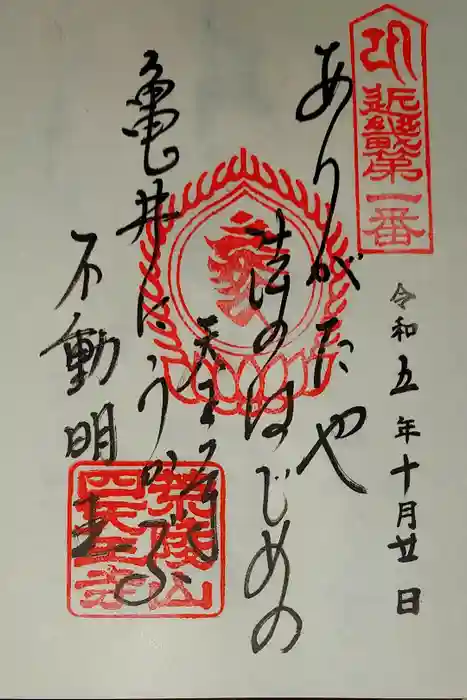 近畿第一番
令和五年十月廿日
ありがたや
法のはじめの
天王寺
亀井にうかぶ
不動明王
荒陵山
四天王寺